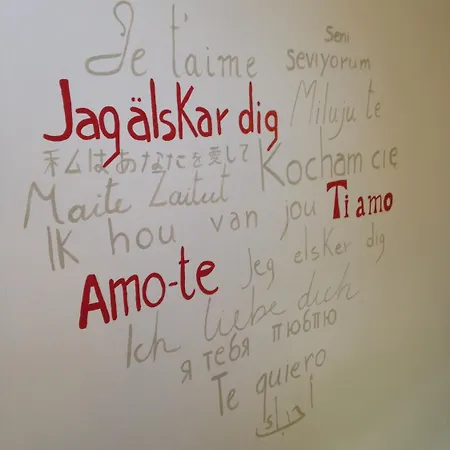 Je t'aime
Seni
seviyorum
Jag älskar dig
Miluju tě
私はあなたを愛して
Kocham cię
Maite Zaitut
Ik hou van jou
Ti amo
Amo-te
Jeg elsker dig
Ich liebe dich
я тебя люблю
Te quiero